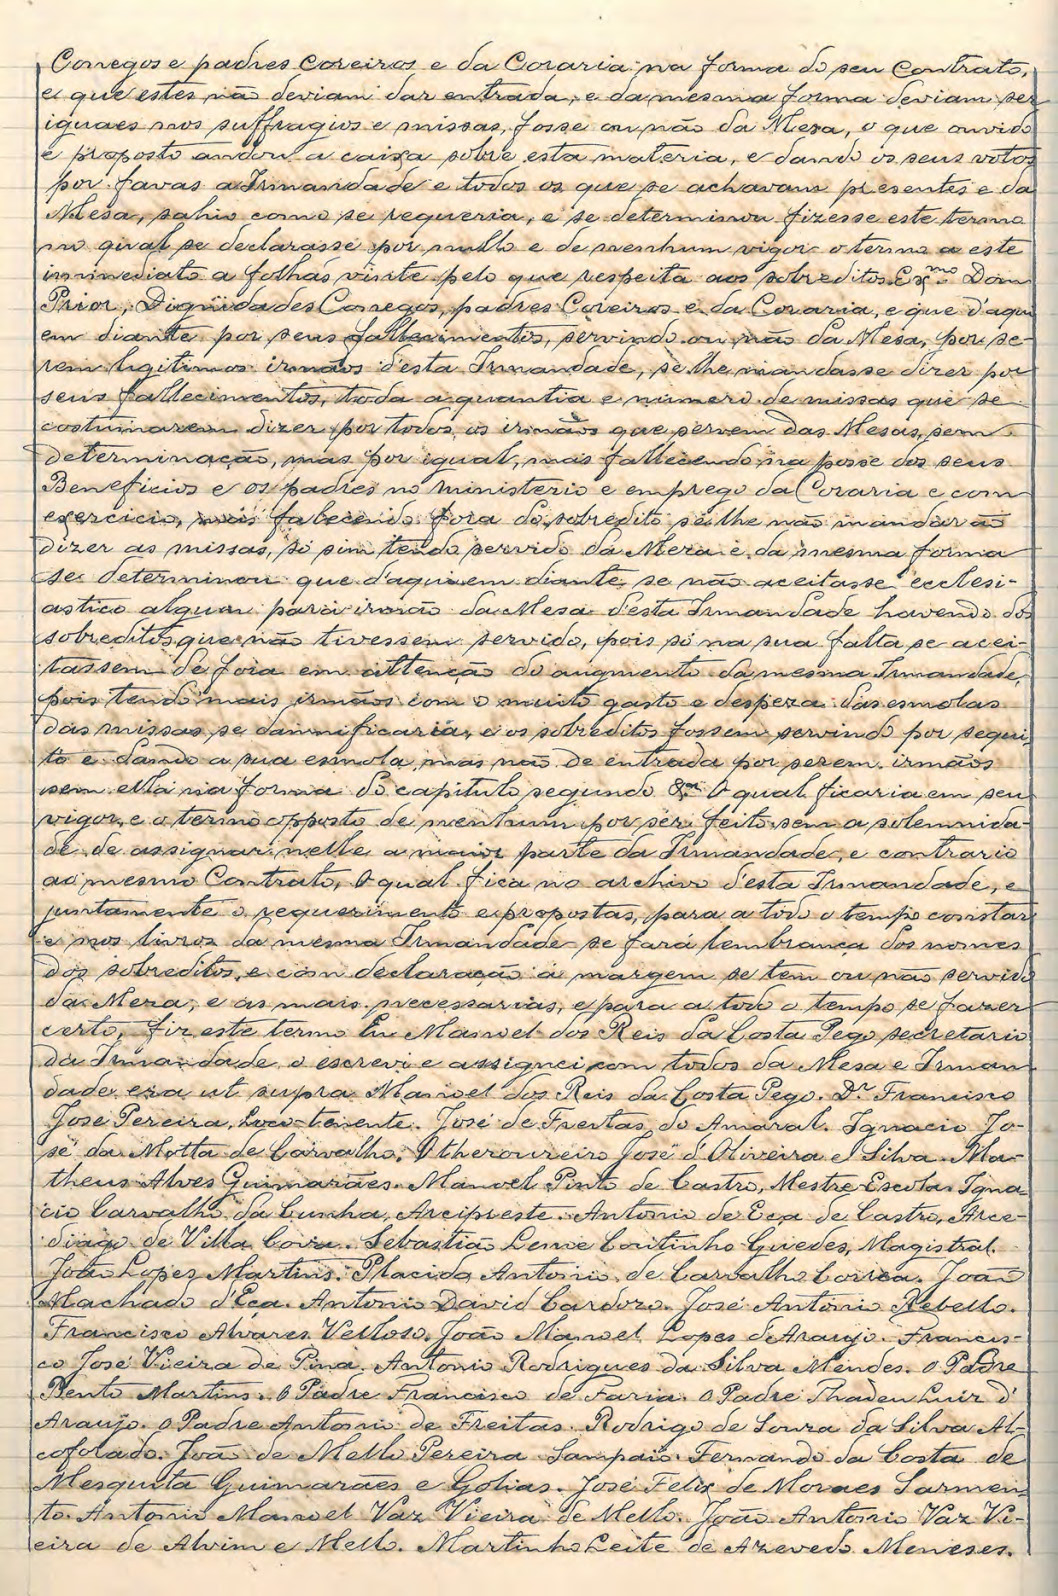 Conegos e padres Coreiros e da Coraria na forma do seu Contrato,
e que estes não deviam dar entrada, e da mesma forma deviam ser
iguaes nos suffragios e missas, fosse ou não da Mesa, o que ouvido
e proposto andou a caixa sobre esta materia, e dando os seus votos
por favas a Irmandade e todos os que se achavam presentes e da
Mesa, sahio como se requeria, e se determinou fizesse este termo
no qual se declarasse por nullo e de nenhum vigor o termo a este
immediato a folhas vinte pelo que respeita aos sobreditos Exmo. Dom
Prior, Dignidades Conegos, padres Coreiros e da Coraria, e que d'aqui
em diante por seus fallecimentos, servindo ou não da Mesa, por se-
rem ligitimos irmãos d'esta Irmandade, se lhe mandasse dizer por
seus fallecimentos, toda a quantia e numero de missas que se
costumarem dizer por todos os irmãos que servem das Mesas, sem
determinação, mas por igual, mas fallecendo na posse dos seus
Beneficios e os padres no ministerio e emprego da Coraria e com
exercicio, mais falecendo fora do sobredito se lhe não mandarão
dizer as missas, só sim tendo servido da Meza e da mesma forma
se determinou que d'aqui em diante se não aceitasse ecclesi-
astico algum para irmão da Mesa d'esta Irmandade havendo dos
sobreditos que não tivessem servido, pois só na sua falta se acei-
tassem de fora em attenção do augmento da mesma Irmandade,
pois tendo mais irmãos com o muito gasto e despeza das esmolas
das missas se damnificaria, e os sobreditos fossem servindo por segui-
to e dando a sua esmola, mas não de entrada por serem irmãos
sem ella na forma do capitulo segundo O qual ficaria em seu
vigor, e o termo opposto de nenhum por ser feito sem a solemnida-
de de assignar nelle a maior parte da Irmandade, e contrario
ao mesmo Contrato, O qual fica no archivo d'esta Irmandade, e
juntamente o requerimento e propostas, para a todo o tempo constar
e nos livros da mesma Irmandade se fará lembrança dos nomes
dos sobreditos, e com declaração á margem se tem ou não servido
da Meza, e as mais necessarias, e para a todo o tempo se fazer
certo, fiz este termo Eu Manoel dos Reis da Costa Pego secretario
da Irmandade o escrevi e assignei com todos da Mesa e Irman
dade era ut supra Manoel dos Reis da Costa Pego. Dr. Francisco
José Pereira, Loco-tenente. José de Freitas do Amaral. Ignacio Jo-
sé da Motta de Carvalho. O thezoureiro José d'Oliveira e Silva. Ma-
theus Alves Guimarães. Manoel Pinto de Castro, Mestre Escola. Igna-
cio Carvalho da Cunha, Arcipreste. Antonio de Eça de Castro, Arce-
diago de Villa Cova. Sebastião Leme Coutinho Guedes, Magistral.
João Lopes Martins. Placido Antonio de Carvalho Corrêa. João
Machado d'Eça. Antonio David Cardozo. José Antonio Rebello.
Francisco Alvares Velloso. João Manoel Lopes d'Araujo. Francis-
co José Vieira de Pina. Antonio Rodrigues da Silva Mendes. O Padre
Bento Martins. O Padre Francisco de Faria. O Padre Thadeu Luiz d'
Araujo. O Padre Antonio de Freitas. Rodrigo de Souza da Silva Al-
coforado. João de Mello Pereira Sampaio. Fernando da Costa de
Mesquita Guimarães e Golias. José Felix de Moraes Sarmen-
to. Antonio Manoel Vaz Vieira de Mello. João Antonio Vaz Vi-
eira de Alvim e Mello. Martinho Leite de Azevedo Meneses.